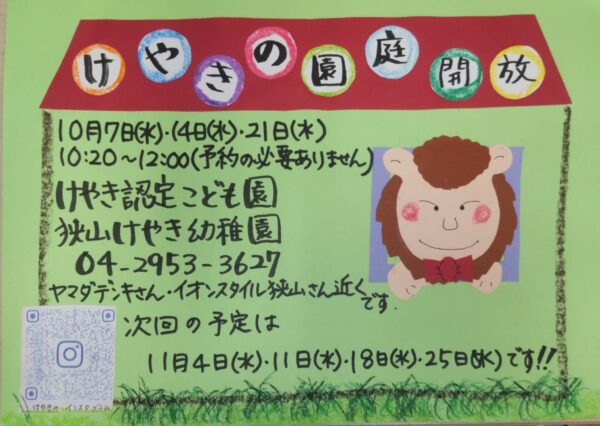 けやきの園庭開放
10月7日(水)・14日(水)・21日(水)
10:20～12:00(予約の必要ありません)
けやき認定こども園
狭山けやき幼稚園
04-2953-3627
ヤマダデンキさん・イオンスタイル狭山さん近くです.
次回の予定は
11月4日(水)・11日(水)・18日(水)・25日(水)です!!
けやきの インスタグラム